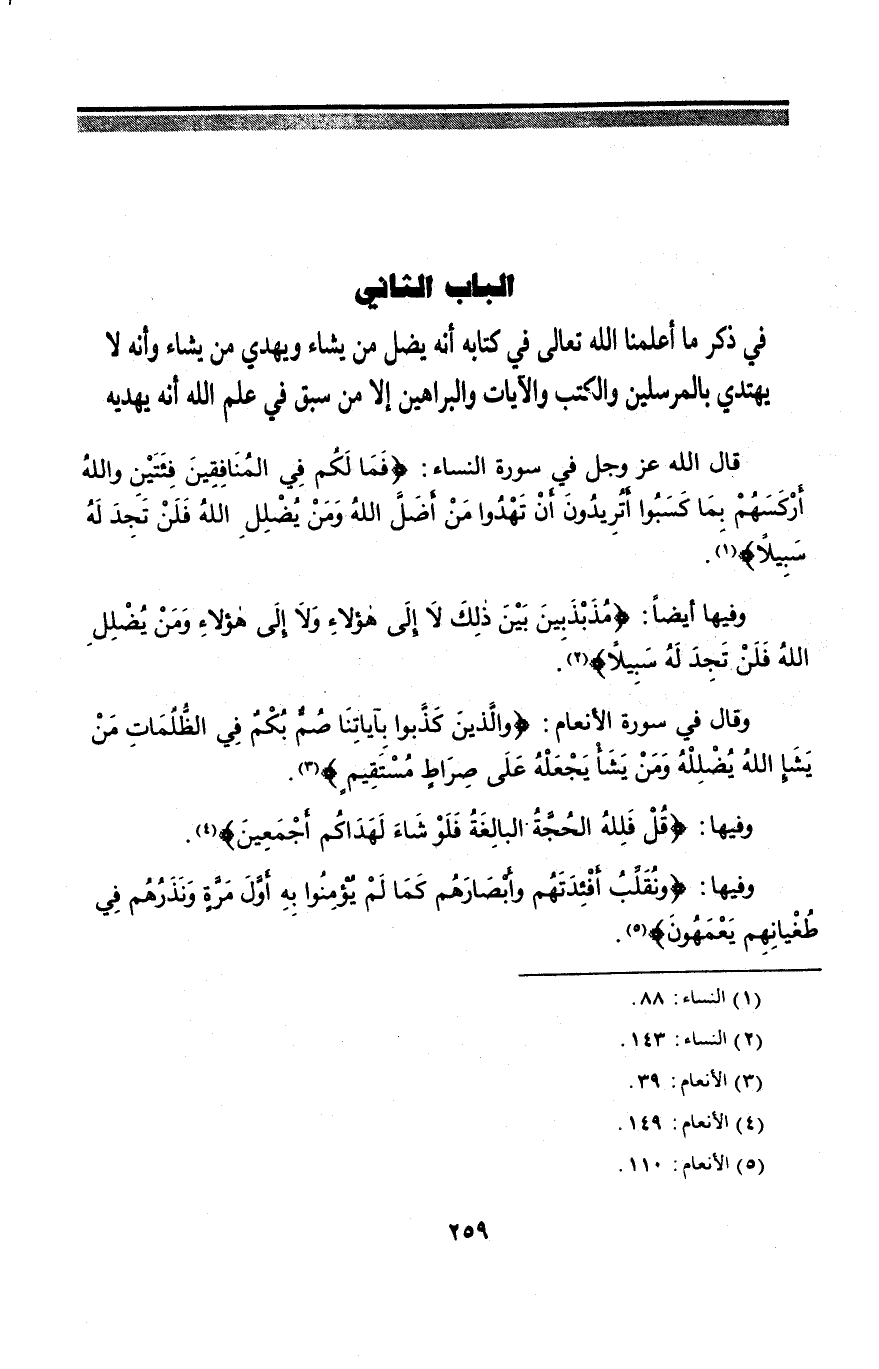 الباب الثاني
في ذكر ما أعلمنا الله تعالى في كتابه أنه يضل من يشاء ويهدي من يشاء وأنه لا
يهتدي بالمرسلين والكتب والآيات والبراهين إلا من سبق في علم الله أنه يهديه
قال الله عز وجل في سورة النساء: ﴿فَمَا لَكُم فِي المُنَافِقِينَ فِئَتَيْنِ واللهُ
أَرْكَسَهُمْ بِمَا كَسَبُوا أَتُرِيدُونَ أَنْ تَهْدُوا مَنْ أَضَلَّ اللهُ وَمَنْ يُضْلِلِ اللهُ فَلَنْ تَجِدَ لَهُ
سَبِيلًا﴾(١).
وفيها أيضاً: ﴿مُذَبْذَبِينَ بَيْنَ ذٰلِكَ لَا إِلَى هٰؤلاءِ وَلَا إِلَى هٰؤلاءِ وَمَنْ يُضْلِلِ
اللهُ فَلَنْ تَجِدَ لَهُ سَبِيلًا﴾(٢).
وقال في سورة الأنعام: ﴿والَّذينَ كَذَّبوا بِآياتِنَا صُمٌّ بُكْمٌ فِي الظُّلُمَاتِ مَنْ
يَشَإِ اللهُ يُضْلِلْهُ وَمَنْ يَشَأْ يَجْعَلْهُ عَلَى صِرَاطٍ مُسْتَقِيمٍ﴾(٣).
وفيها: ﴿قُلْ فَلِلهِ الحُجَّةُ البالِغَةُ فَلَوْ شَاءَ لَهَدَاكُم أَجْمَعِينَ﴾(٤).
وفيها: ﴿ونُقَلِّبُ أَفْئِدَتَهُم وأَبْصَارَهُم كَمَا لَمْ يُؤمِنُوا بِهِ أَوَّلَ مَرَّةٍ وَنَذَرُهُم فِي
طُغْيانِهِم يَعْمَهُونَ﴾(٥).
(١) النساء: ٨٨.
(٢) النساء: ١٤٣.
(٣) الأنعام: ٣٩.
(٤) الأنعام: ١٤٩.
(٥) الأنعام: ١١٠.
٢٥٩